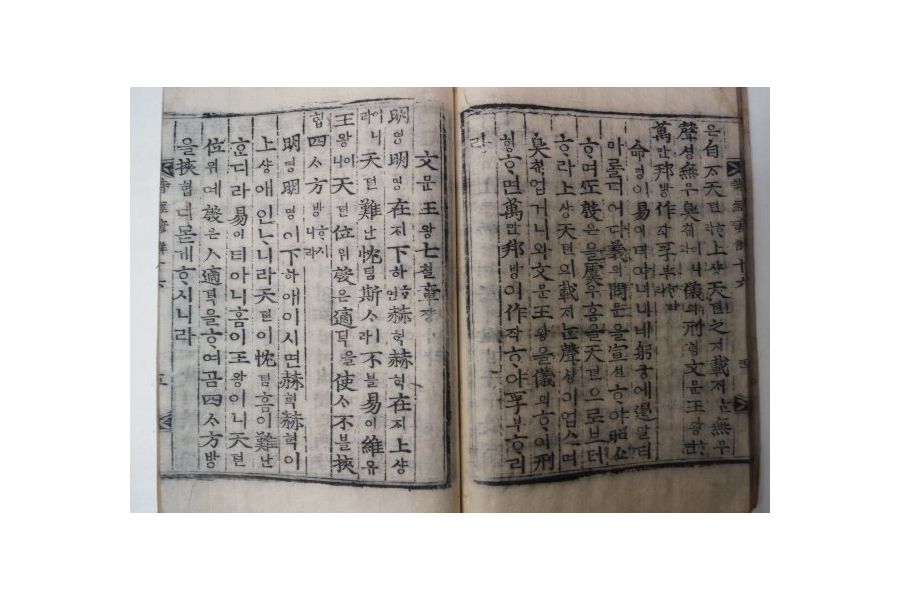 은自ᄌᆞ天텬ᄒᆞ라上샹天텬之지載ᄌᆡᄂᆞᆫ無무
聲셩無무臭ᄎᆔ어니와儀의刑형文문王왕ᄒᆞ면
萬만邦방作작孚부ᄒᆞ리라
命명이易이티아니ᄒᆞ니네躬궁에遏알티
마롤디어다義의問문을宣션ᄒᆞ야昭쇼
ᄒᆞ며ᄯᅩ殷은을虞우홈을天텬으로브터
ᄒᆞ라上샹天텬의載ᄌᆡᄂᆞᆫ聲셩이업스며
臭ᄎᆔ업거니와文문王왕을儀의ᄒᆞ야刑
형ᄒᆞ면萬만邦방이作작ᄒᆞ야孚부ᄒᆞ리
라
文문王왕七칠章쟝
明명明명在ᄌᆡ下하ᄒᆞ면赫혁赫혁在ᄌᆡ上샹
이니라天텬難난忱팀斯ᄉᆞ라不블易이維유
王왕이니天텬位위殷은適뎍을使ᄉᆞ不블挾
협四ᄉᆞ方방ᄒᆞ시니라
明명明명이下하애이시면赫혁赫혁이
上샹애인ᄂᆞ니라天텬이忱팀홈이難난
ᄒᆞ디라易이티아니홈이王왕이니天텬
位위예殷은ㅅ適뎍을ᄒᆞ여곰四ᄉᆞ方방
을挾협디몯게ᄒᆞ시니라